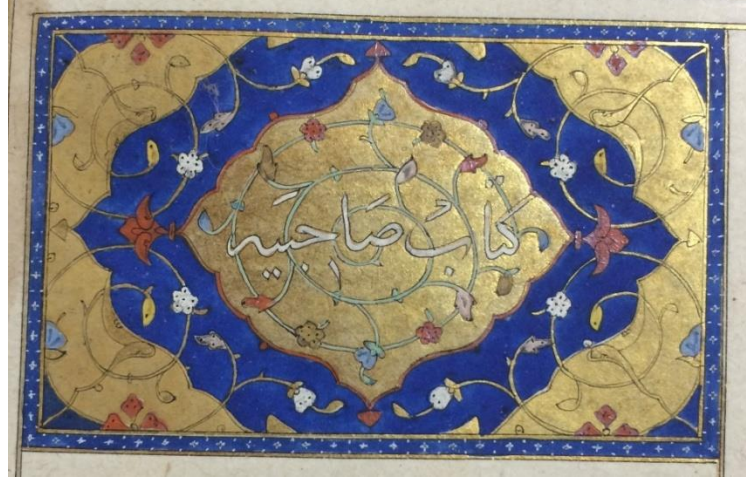 کتابْ صَاحبیَه